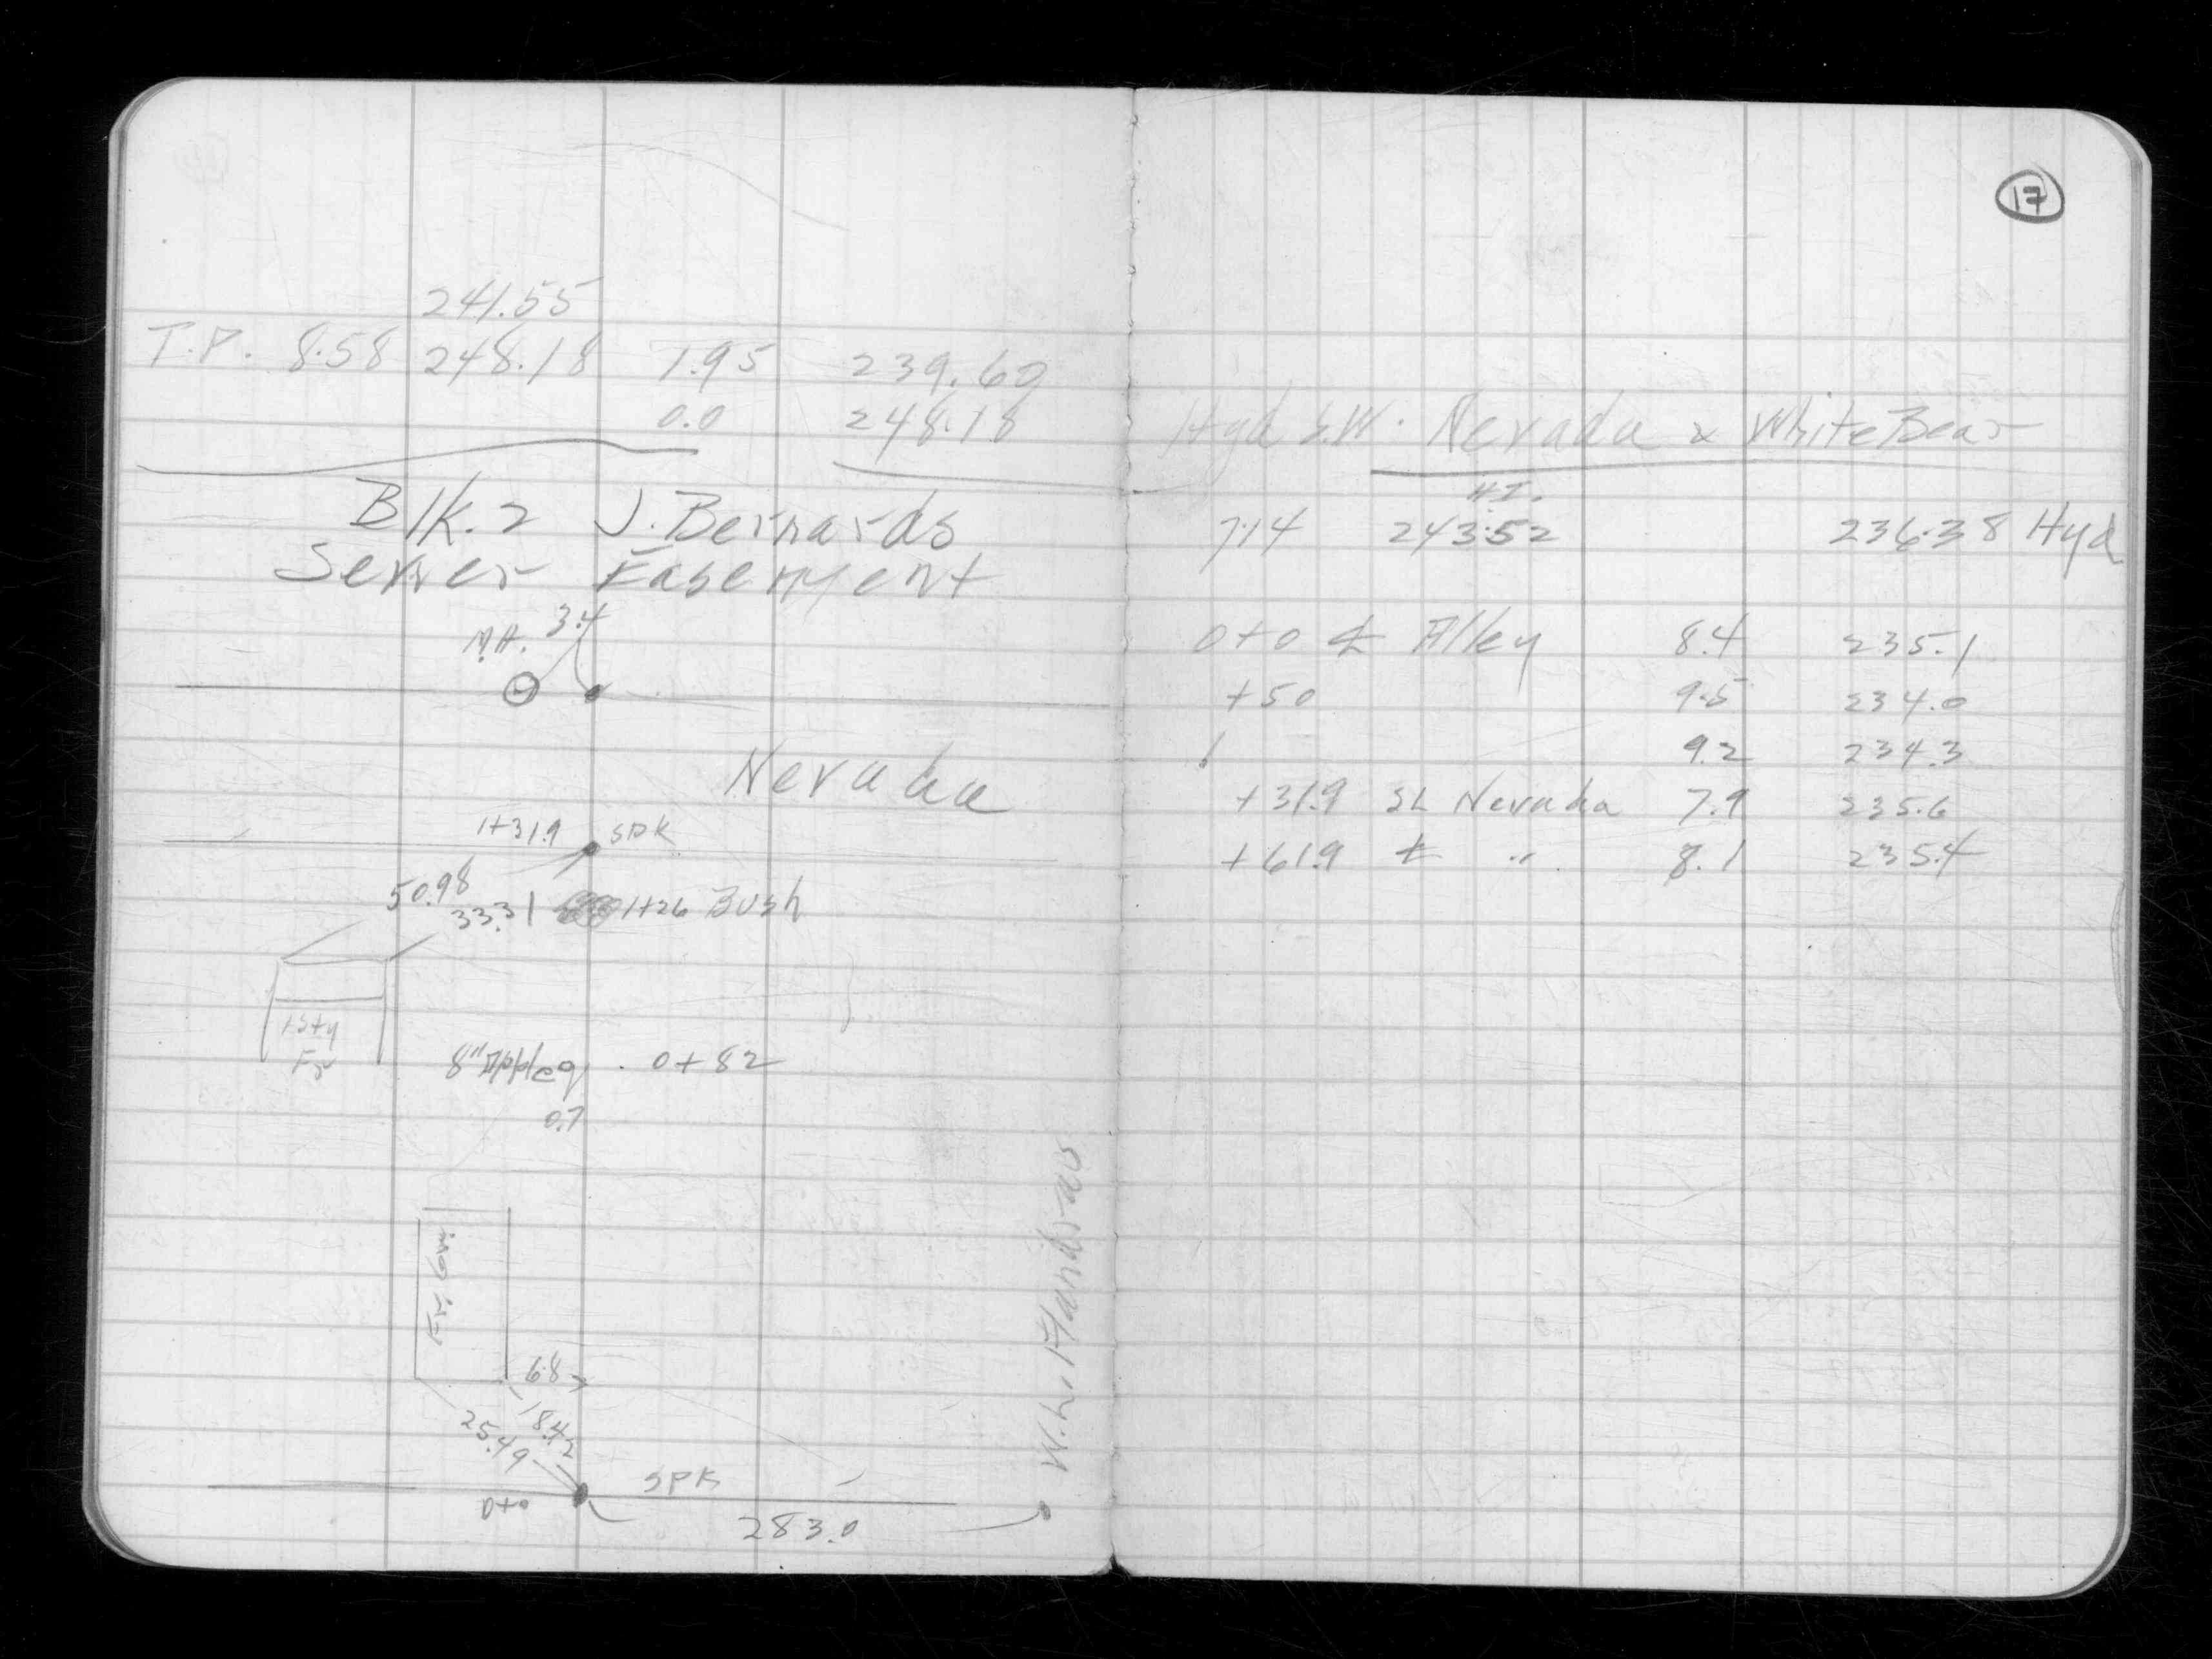 17
241.55
T.P. 8.58 248.18 1.95 239.60
0.0 248.18
Blk. 2 J. Bernards
Sewer Easement
M.H. 3.4
Nevada
1+31.9 SPK
50.98
33.31 1+26 Bush
1 Sty
Fr
8" Apple 0+82
0.7
Fr. Gar.
6.8
18.42
25.49
SPK
0+0
283.0
W.L.
Hyd S.W. Nevada & White Bear
H.I.
7.14 243.52 236.38 Hyd
0+0 ℄ Alley 8.4 235.1
+50 9.5 234.0
1 9.2 234.3
+31.9 SL Nevada 7.9 235.6
+61.9 ℄ " 8.1 235.4